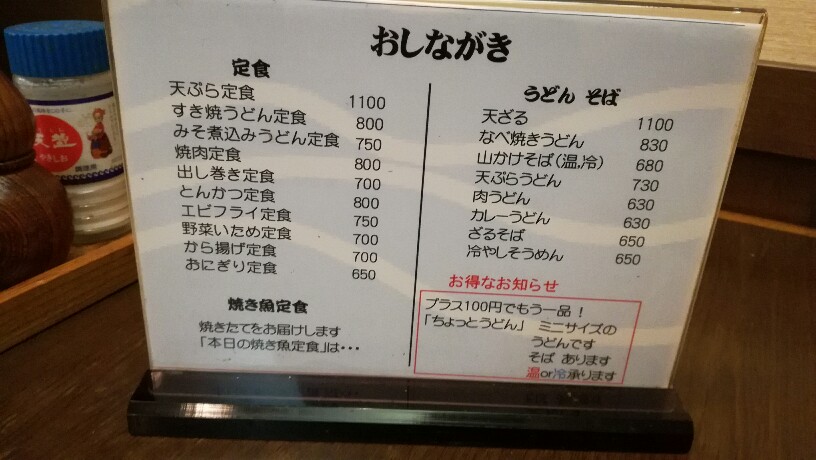 おしながき
定食
天ぷら定食 1100
すき焼うどん定食 800
みそ煮込みうどん定食 750
焼肉定食 800
出し巻き定食 700
とんかつ定食 800
エビフライ定食 750
野菜いため定食 700
から揚げ定食 700
おにぎり定食 650
焼き魚定食
焼きたてをお届けします
「本日の焼き魚定食」は・・・
うどん そば
天ざる 1100
なべ焼きうどん 830
山かけそば(温,冷) 680
天ぷらうどん 730
肉うどん 630
カレーうどん 630
ざるそば 650
冷やしそうめん 650
お得なお知らせ
プラス100円でもう一品!
「ちょっとうどん」 ミニサイズの
うどんです
そば あります
温or冷承ります